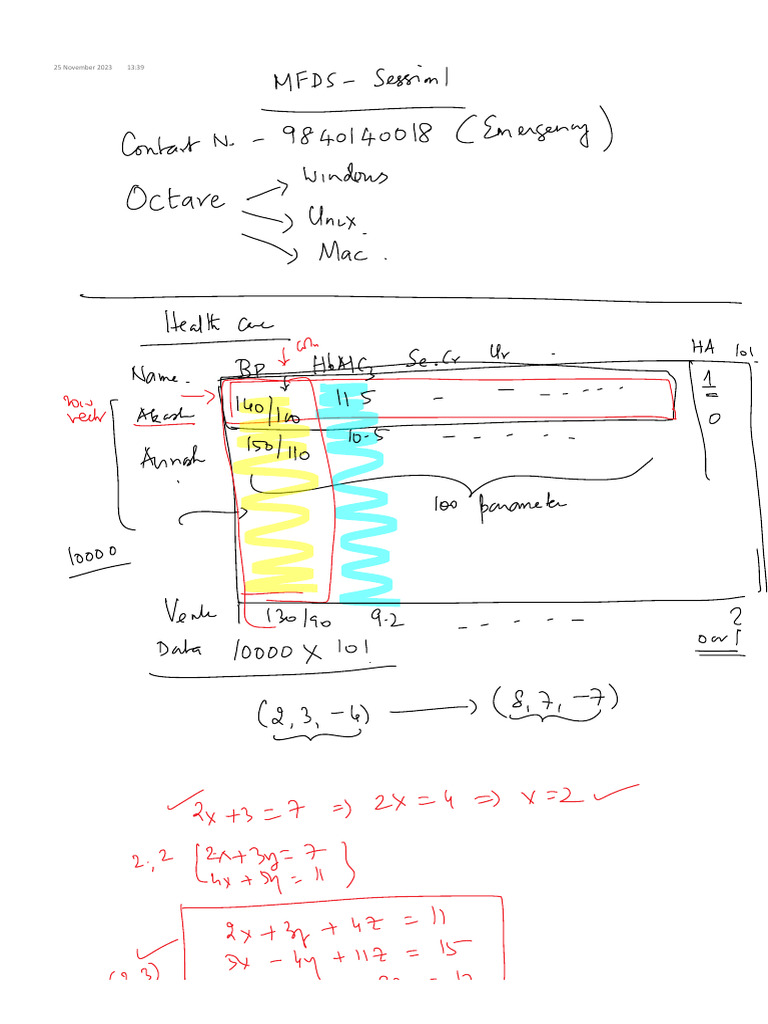 25 November 2023 13:39
MFDS - Session 1
Contact N. - 9840140018 (Emergency)
Octave
Windows
Unix.
Mac.
Health care
Name. BP HbA1C Se. Cr Ur - HA 101
row vector
col
Akash 140/100 11.5 - — 1
150/110 10.5 0
100 parameter
10000
130/90 9.2 2
Data 10000 X 101 0 or 1
(2, 3, -4) → (8, 7, -7)
2x+3=7 ⇒ 2x=4 ⇒ x=2
2:,2 2x+3y=7
4x+5y=11
2x+3y+4z=11
3x-4y+11z=15